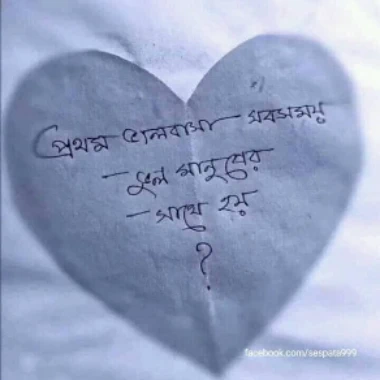 প্রথম ভালবাসা সবসময়
- ভুল মানুষের
- সাথে হয়
?
facebook.com/sespata999